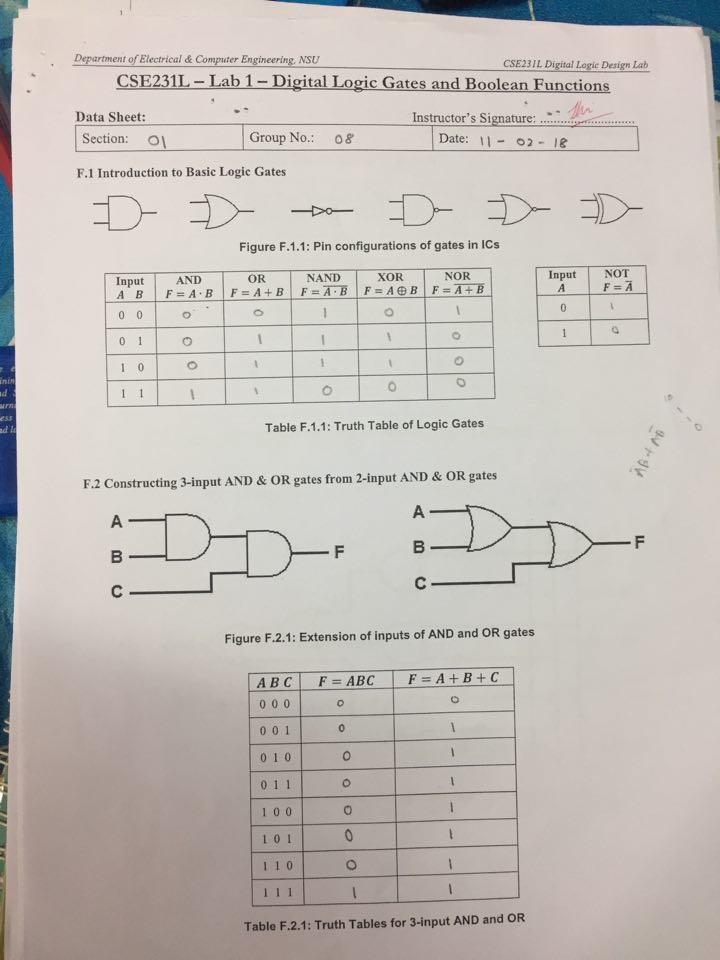 Department of Electrical & Computer Engineering, NSU CSE231L Digital Logic Design Lab
CSE231L – Lab 1 – Digital Logic Gates and Boolean Functions
Data Sheet: Instructor's Signature: ..............................
Section: 01 Group No.: 08 Date: 11 - 02 - 18
F.1 Introduction to Basic Logic Gates
Figure F.1.1: Pin configurations of gates in ICs
Input AND OR NAND XOR NOR Input NOT
A B F = A · B F = A + B F = A̅ ̅·̅ ̅B̅ F = A ⊕ B F = A̅ ̅+̅ ̅B̅ A F = A̅
0 0 0 0 1 0 1 0 1
0 1 0 1 1 1 0 1 0
1 0 0 1 1 1 0
1 1 1 1 0 0 0
Table F.1.1: Truth Table of Logic Gates
F.2 Constructing 3-input AND & OR gates from 2-input AND & OR gates
A A
B F B F
C C
Figure F.2.1: Extension of inputs of AND and OR gates
A B C F = ABC F = A + B + C
0 0 0 0 0
0 0 1 0 1
0 1 0 0 1
0 1 1 0 1
1 0 0 0 1
1 0 1 0 1
1 1 0 0 1
1 1 1 1 1
Table F.2.1: Truth Tables for 3-input AND and OR